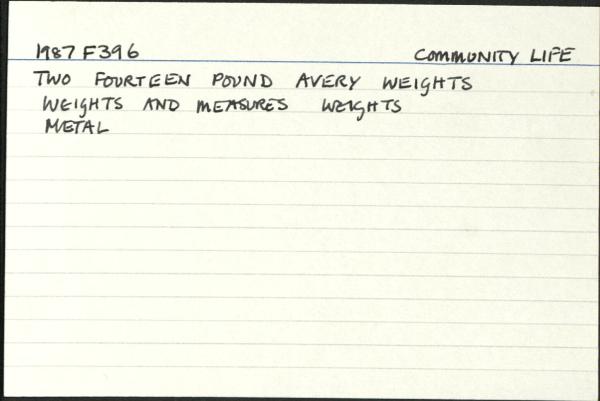 1987 F396 COMMUNITY LIFE
TWO FOURTEEN POUND AVERY WEIGHTS
WEIGHTS AND MEASURES WEIGHTS
METAL